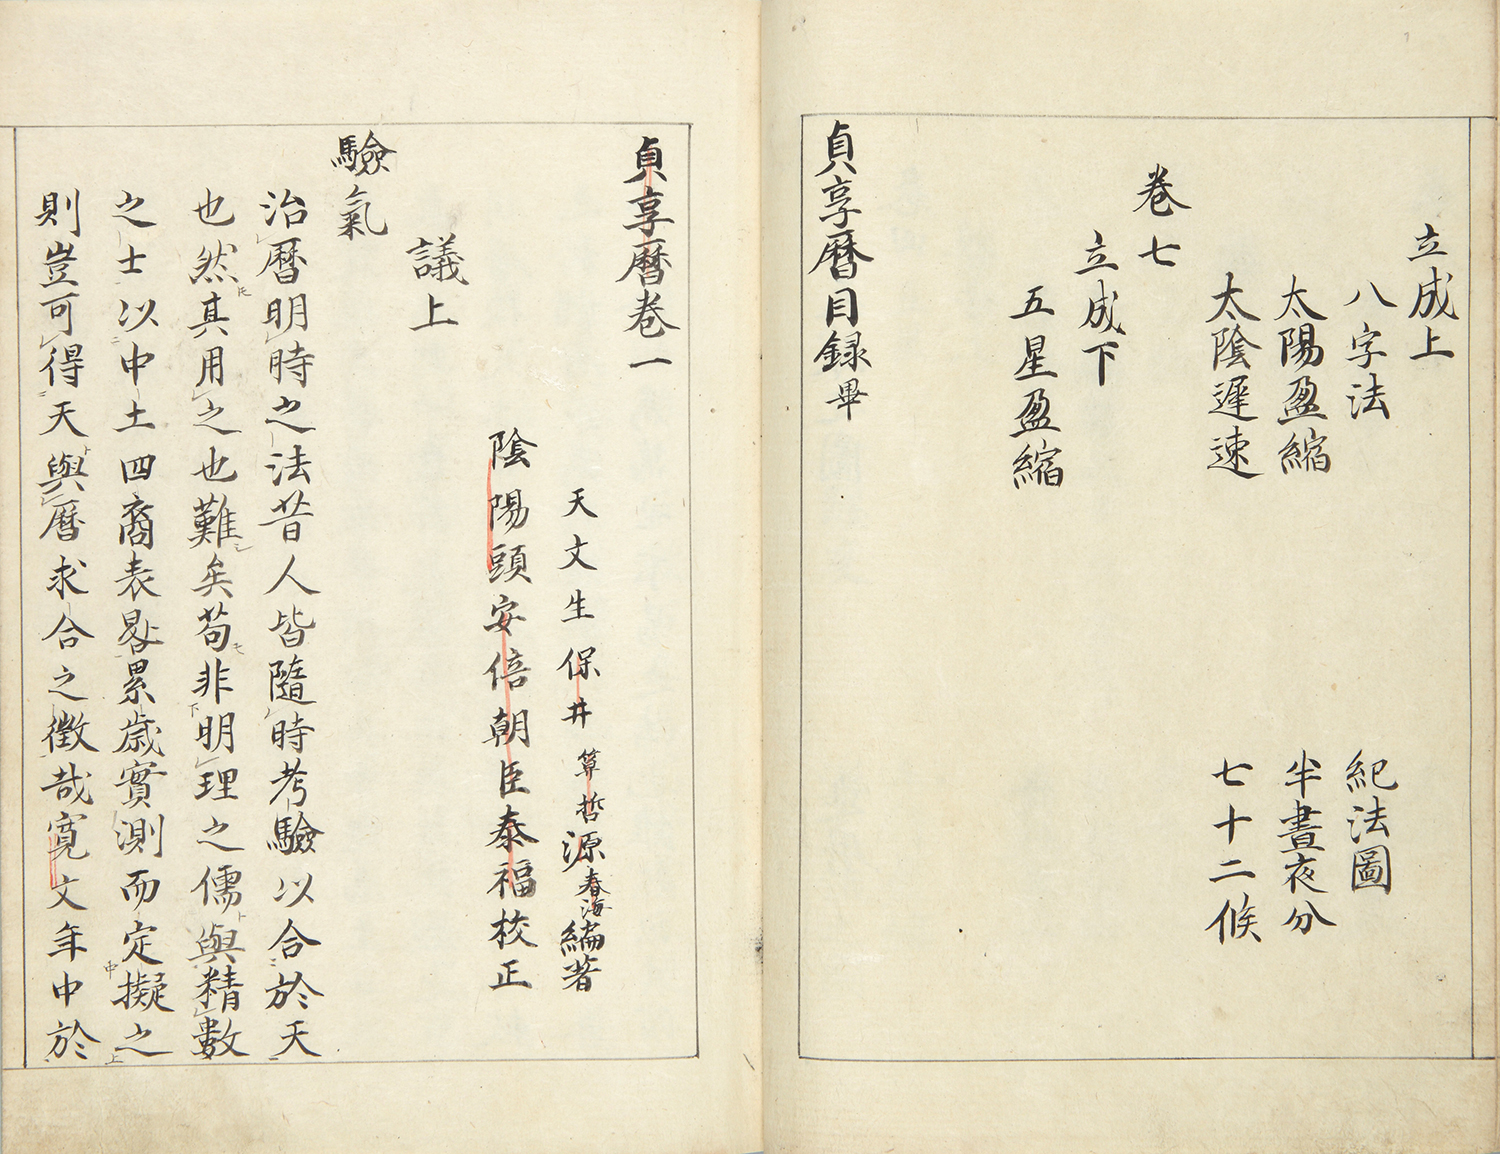 立成上
八字法 紀法圖
太陽盈縮 半晝夜分
太陰遲速 七十二候
卷七
立成下
五星盈縮
貞享曆目録畢
貞享曆卷一
天文生保井算哲源春海編著
陰陽頭安倍朝臣泰福校正
議上
驗氣
治曆明時之法昔人皆隨時考驗以合於天
也然其用之也難矣苟非明理之儒與精數
之士以中土四裔表晷累歲實測而定擬之
則豈可得天與曆求合之徵哉寛文年中於